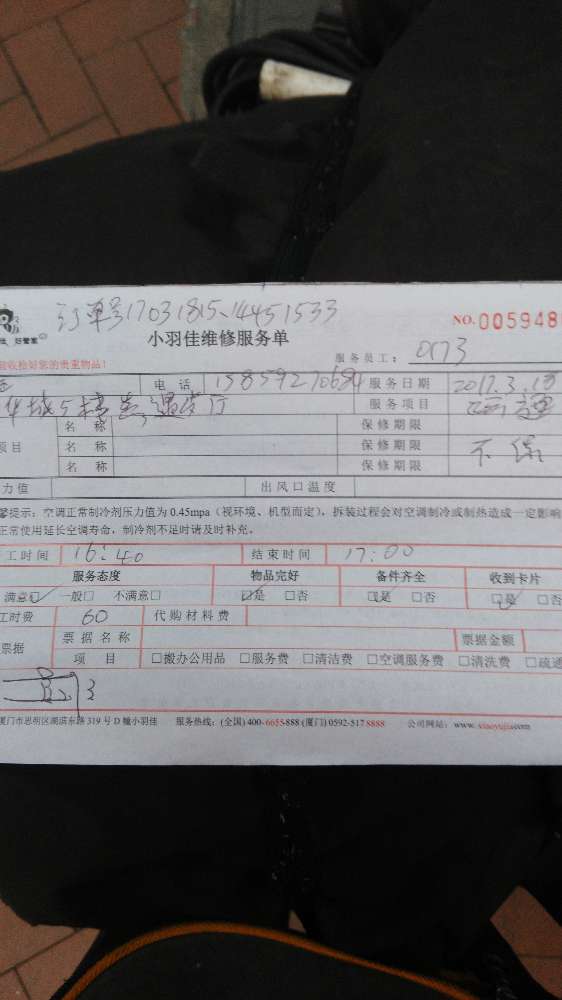 订单号17031815-14451533
小羽佳维修服务单 NO.005948
好管家
验收检好您的贵重物品!
服务员工: 0173
电 话 服务日期 2017.3.18
华城5楼 服务项目
名 称 保修期限
项目 名 称 保修期限 不保
名 称 保修期限
力值 出风口温度
馨提示:空调正常制冷剂压力值为 0.45mpa(视环境、机型而定),拆装过程会对空调制冷或制热造成一定影响
正常使用延长空调寿命,制冷剂不足时请及时补充。
工时间 16:40 结束时间 17:00
服务态度 物品完好 备件齐全 收到卡片
满意☑ 一般□ 不满意□ ☑是 □否 ☑是 □否 ☑是 □否
工时费 60 代购材料费
票据 票据名称 票据金额
项 目 □搬办公用品 □服务费 □清洁费 □空调服务费 □清洗费 □疏通
厦门市思明区湖滨东路 319 号 D 幢小羽佳 服务热线:(全国)400-6655-888 (厦门) 0592-517 8888 公司网站:www.xiaoyujia.com